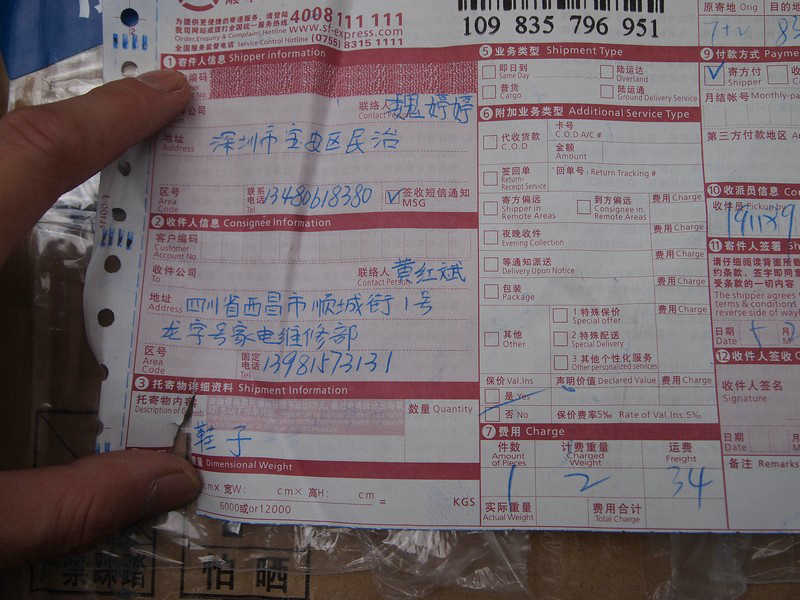 为提供更便捷的寄递服务，请登陆
我司网站或拨打全国统一服务热线 4008 111 111
Order, Enquiry & Complaint Hotline www.sf-express.com
全国服务监督电话 Service Control Hotline (0755) 8315 1111
109 835 796 951
原寄地 Orig
目的地
1 寄件人信息 Shipper Information
编码
公司
联络人 魏婷婷
Contact Person
地址 深圳市宝安区民治
Address
区号
Area Code
联系电话 Tel 13480618380
签收短信通知 MSG
2 收件人信息 Consignee Information
客户编码
Customer Account No
收件公司
To
联络人 黄红斌
Contact Person
地址 四川省西昌市顺城街1号
Address
龙字号家电维修部
区号
Area Code
固定电话 Tel 13981573131
3 托寄物详细资料 Shipment Information
托寄物内容
Description of Goods
数量 Quantity
鞋子
量 Dimensional Weight
cm× 宽W: cm× 高H: cm =
6000或or12000
KGS
5 业务类型 Shipment Type
即日到
Same Day
陆运达
Overland
普货
Cargo
陆运通
Ground Delivery Service
6 附加业务类型 Additional Service Type
代收货款
C.O.D
卡号
C.O.D A/C #
金额
Amount
签回单
Return Receipt Service
回单号: Return Tracking #
寄方偏远
Shipper in Remote Areas
到方偏远
Consignee in Remote Areas
费用 Charge
夜晚收件
Evening Collection
费用 Charge
等通知派送
Delivery Upon Notice
费用 Charge
包装
Package
费用 Charge
其他
Other
1 特殊保价
Special offer
2 特殊配送
Special Delivery
3 其他个性化服务
Other personalized services
保价 Val.Ins
声明价值 Declared Value
费用 Charge
是 Yes
否 No
保价费率5‰ Rate of Val.Ins.5‰
7 费用 Charge
件数
Amount of Pieces
计费重量
Charged Weight
运费
Freight
1 2 34
实际重量
Actual Weight
费用合计
Total Charge
9 付款方式 Payme
寄方付
Shipper
月结帐号 Monthly-pa
第三方付款地区
10 收派员信息 Cou
收件员 Pickup by
11 寄件人签署 Sh
请仔细阅读背面所载
约条款，签字即同意
受条款的一切内容
The shipper agrees
terms & conditions
reverse side of way
日期
Date
12 收件人签收
收件人签名
Signature
日期
Date
备注 Remarks
禁踩踏
怕晒